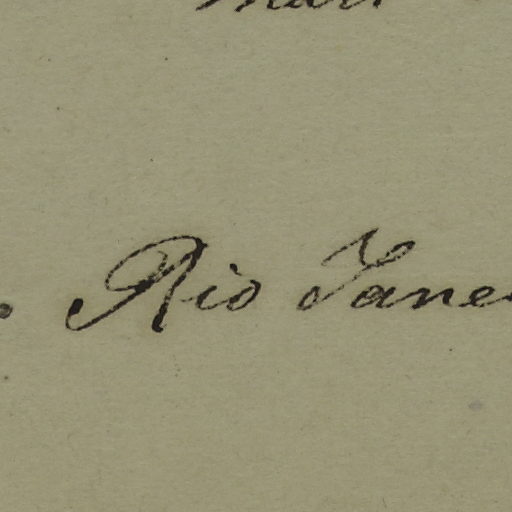 Rio Jane